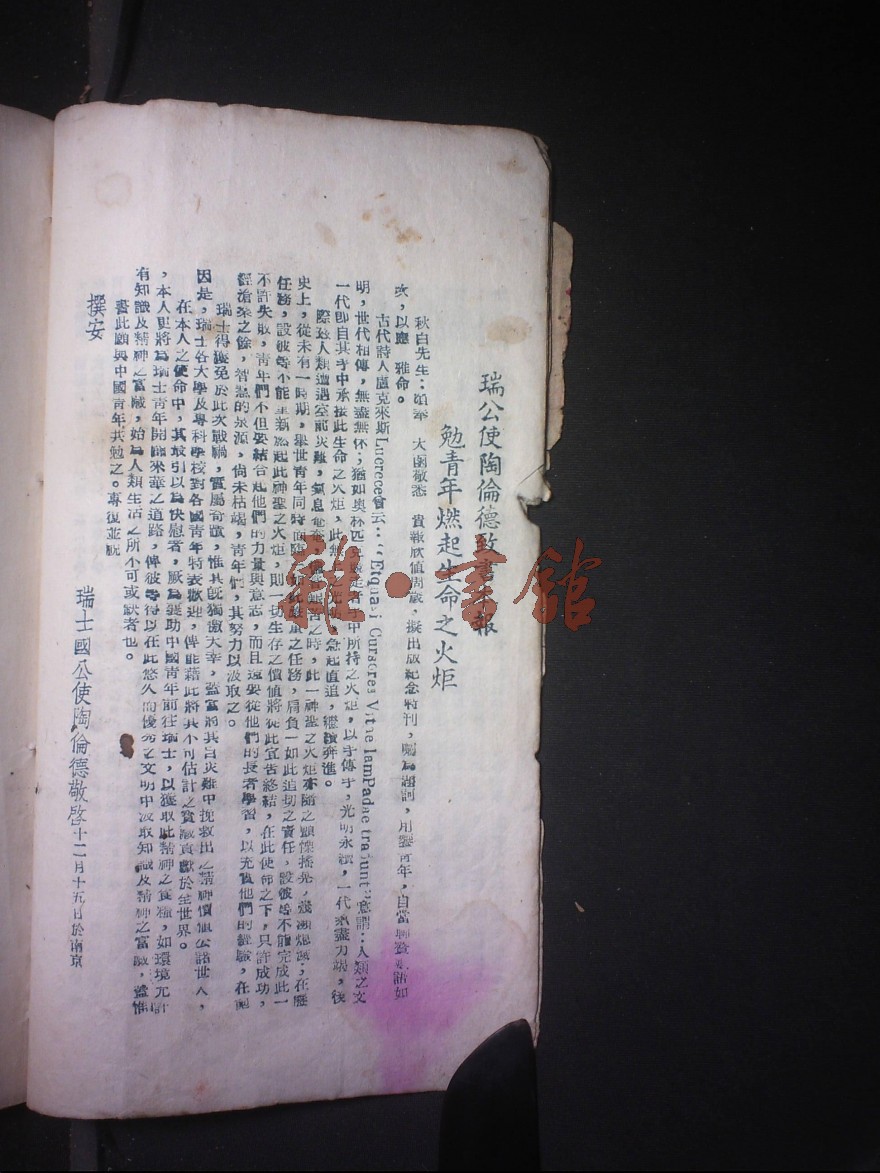 瑞公使陶倫德致書本報
勉青年燃起生命之火炬
秋白先生:頃奉 大函敬悉 貴報欣值周歲,擬出版紀念特刊,囑為題詞,用勗青年,自當
次,以應 雅命。
古代詩人盧克米斯Lucrece曾云:“Etquasi Cursores Vitae lamPadae tradunt”意謂:人類之文
明,世代相傳,無盡無休;猶如奧林匹克競走者手中所持之火炬,以手傳手,光明永續,一代眾盡力竭,後
一代即自其手中承接此生命之火炬,此無 急起直追,繼續奔進。
際茲人類遭遇空前災難,氣息奄奄, 艱苦之時,此一神聖之火炬亦隨之顫慄搖晃,幾瀕熄滅;在歷
史上,從未有一時期,舉世青年同時面臨如此嚴重之任務,肩負一如此迫切之責任,設彼等不能完成此一
任務,設彼等不能重新燃起此神聖之火炬,則一切生存之價值將從此宣告終結,在此使命之下,只許成功,
不許失敗,青年們不但要結合起他們的力量與意志,而且還要從他們的長者學習,以充實他們的經驗,在劇
經滄桑之餘,智慧的泉源,尚未枯竭,青年們,其努力以汲取之。
瑞士得護免於此次戰禍,實屬奇蹟,惟其既獨徼天幸,益當將其自災難中挽救出之精神價值公諸世人,
因是,瑞士各大學及專科學校對各國青年特表歡迎,俾能藉此將其不可估計之寶藏貢獻於全世界。
在本人之使命中,其最引以為快慰者,厥為襄助中國青年前往瑞士,以獲取此精神之食糧,如環境允許
,本人更將為瑞士青年開闢來華之道路,俾彼等得以在此悠久而優秀之文明中汲取知識及精神之富藏,蓋惟
有知識及精神之富藏,始為人類生活之所不可或缺者也。
書此願與中國青年共勉之。專復並祝
撰安
瑞士國公使陶倫德敬啓十二月十五日於南京
雅·書館